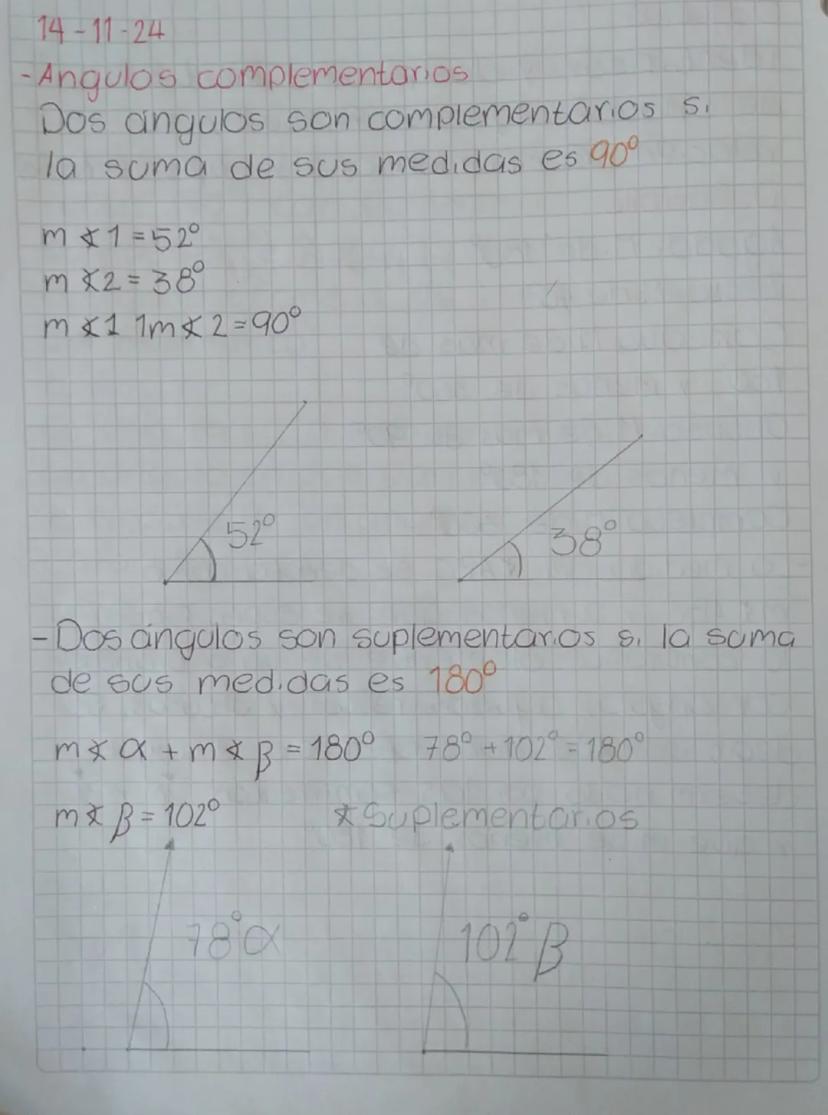 14-11-24
-Angulos complementarios
Dos ángulos son complementarios si
la suma de sus medidas es 90°
m∡1=52°
m∡2=38°
m∡1 1m∡2=90°
52°
38°
-Dos ángulos son suplementarios si la suma
de sus medidas es 180°
m∡α + m∡β = 180° 78°+102°=180°
m∡β=102° *Suplementarios
78°α
102°β